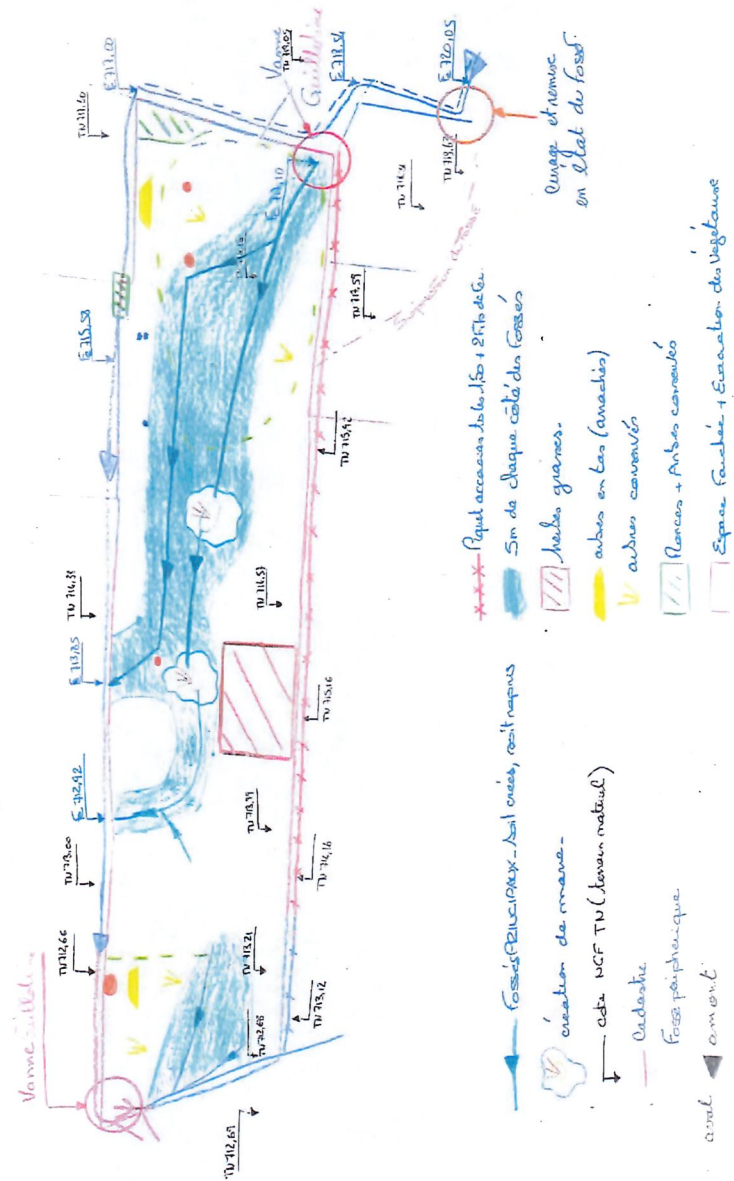 Vanne Guillotine
TN 712,66
TN 713.00
E 712,92
E 713,85
TN 714,31
E 715,58
TN 717.60
E 717,00
Vanne
TN 719,05
Guillotine
E 718,54
E 720,05
E 717,10
TN 719,62
TN 718,59
Suppression du fossé
curage et remise
en état du fossé.
TN 712,69
TN 712,68
TN 713,21
TN 713,12
TN 714,16
TN 715,16
TN 714,53
TN 715,92
Fossés PRINCIPAUX - soit créés, soit repris
création de mare -
cote NGF TN (terrain naturel)
Cadastre
Fossé périphérique
aval
amont
Piquet accacias to les 1,50 + 2 Fils de fer.
5m de chaque côté des Fossés
herbes grasses.
arbres en tas (arrachés)
arbres conservés
Ronces + Arbres conservés
Espace Fauchée + Evacuation des Vegetaux